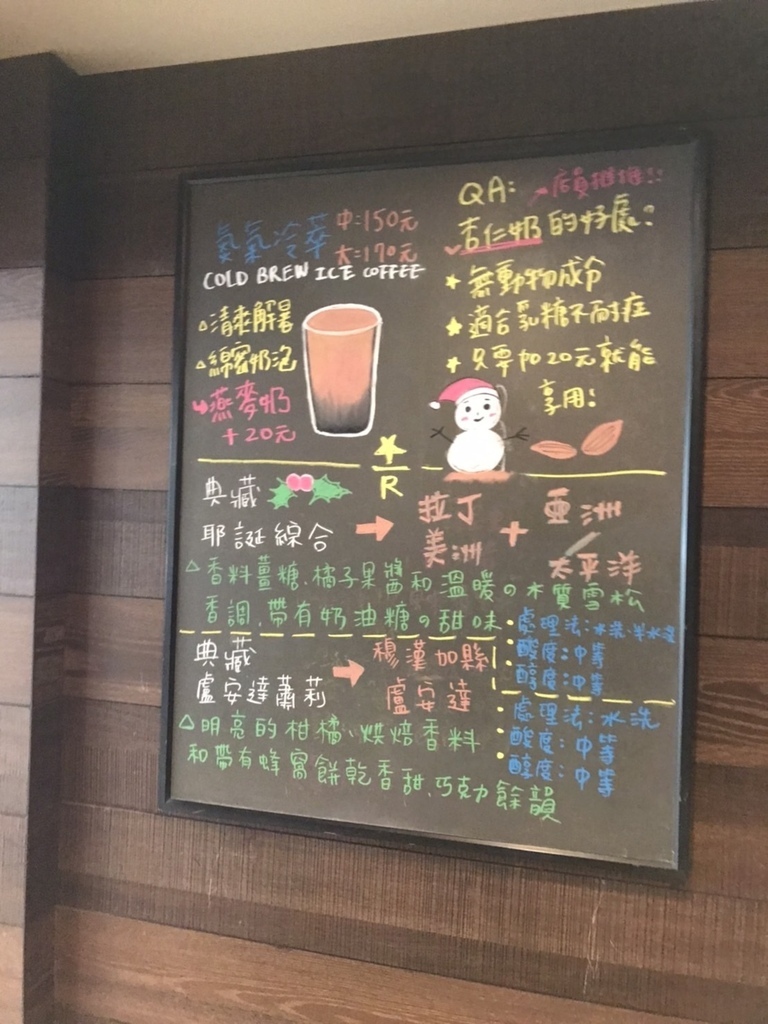 氮氣冷萃 中=150元
大=170元
COLD BREW ICE COFFEE
△清爽解暑
△綿密奶泡
燕麥奶
+20元
QA: 店員推推!!
杏仁奶的好處?
★無動物成分
★適合乳糖不耐症
★只要加20元就能
享用!
R
典藏
耶誕綜合
拉丁
美洲
+
亞洲
太平洋
△香料薑糖、橘子果醬和溫暖の木質雪松
香調、帶有奶油糖の甜味
•處理法:水洗、半水洗
•酸度:中等
•醇度:中等
典藏
盧安達蕭莉
穆漢加縣
盧安達
△明亮的柑橘、烘焙香料
和帶有蜂窩餅乾香甜、巧克力餘韻
•處理法:水洗
•酸度:中等
•醇度:中等